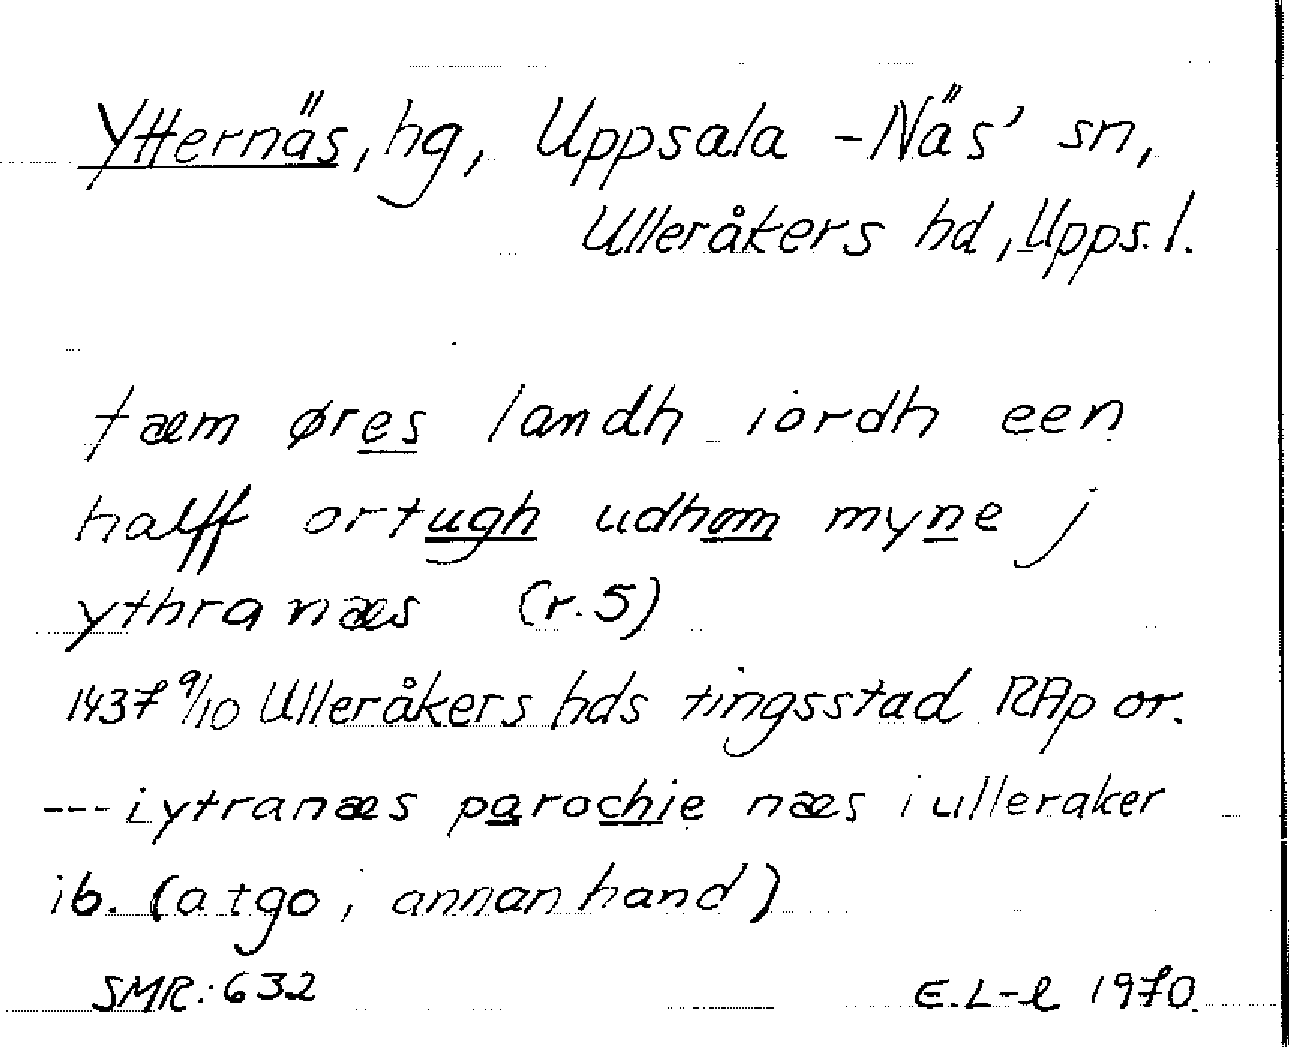 Ytternäs, hg, Uppsala-Näs' sn,
Ulleråkers hd, Upps. l.
fæm øres landh iordh een
halff ortugh udhom myne j
ythranæs (r. 5)
1437 9/10 Ulleråkers hds tingsstad RAp or.
--- i ytranæs parochie næs i ulleraker
ib. (a tgo, annan hand)
SMR: 632 E. L-l 1970